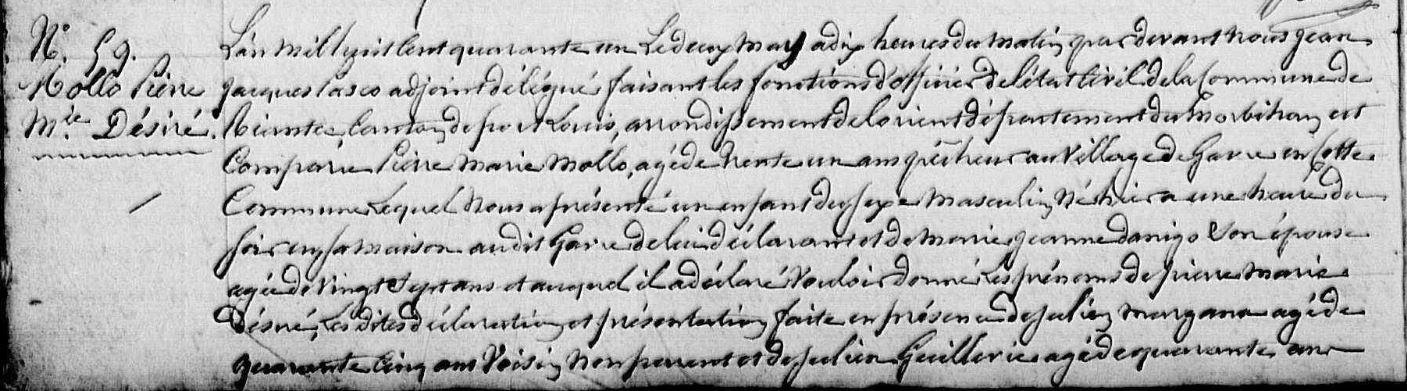 N.° 59.
Mollo Pierre
M.ie Désiré.
L'an mil huit cent quarante un Le deux Mars a dix heures du Matin par devant Nous Jean
Jacques Lasco adjoint délégué faisant les fonctions d'officier De l'état Civil de la Commune de
Riantec, Canton de port Louis, arrondissement de Lorient département du Morbihan, est
Comparu Pierre Marie Mollo, agé de trente un ans pêcheur au Village de Gavre en Cette
Commune Lequel Nous a présenté un enfant du sexe Masculin Né hier a une heure du
soir en sa maison au dit Gavre de lui déclarant et de Marie Jeanne Danigo Son épouse
agée de Vingt Sept ans et auquel il a déclaré Vouloir donné Les prénoms de pierre Marie
Désiré, Les dites déclaration et présentation faite en présence de Julien Margana agé de
quarante Cinq ans Voisin Non parent et de Julien Guillerie agé de quarante ans